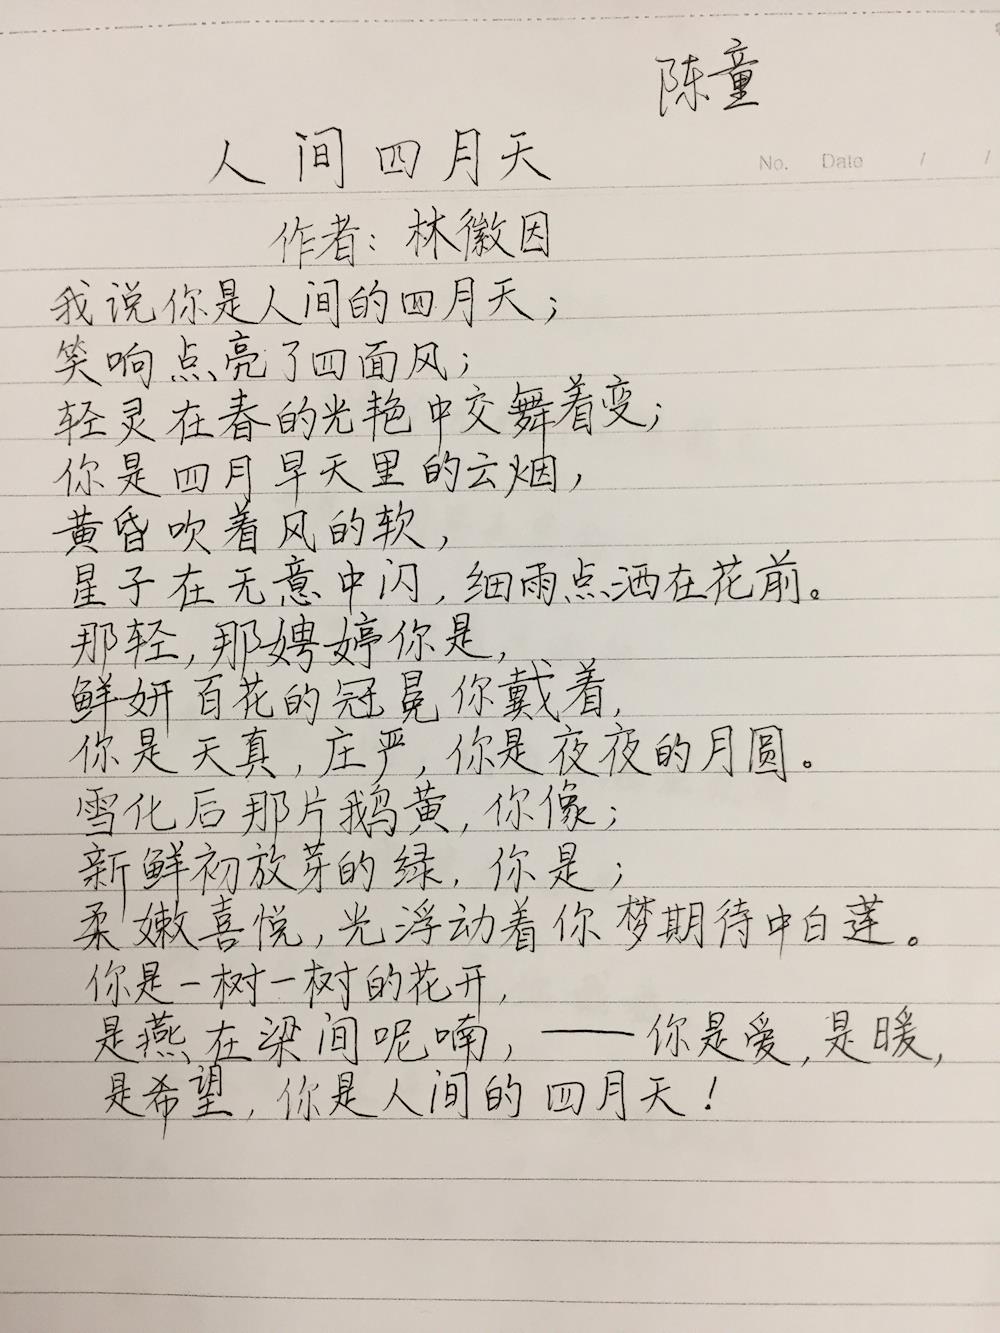 陈童
No. Date / /
人间四月天
作者：林徽因
我说你是人间的四月天；
笑响点亮了四面风；
轻灵在春的光艳中交舞着变；
你是四月早天里的云烟，
黄昏吹着风的软，
星子在无意中闪，细雨点洒在花前。
那轻，那娉婷你是，
鲜妍百花的冠冕你戴着，
你是天真，庄严，你是夜夜的月圆。
雪化后那片鹅黄，你像；
新鲜初放芽的绿，你是；
柔嫩喜悦，光浮动着你梦期待中白莲。
你是一树一树的花开，
是燕在梁间呢喃，——你是爱，是暖，
是希望，你是人间的四月天！